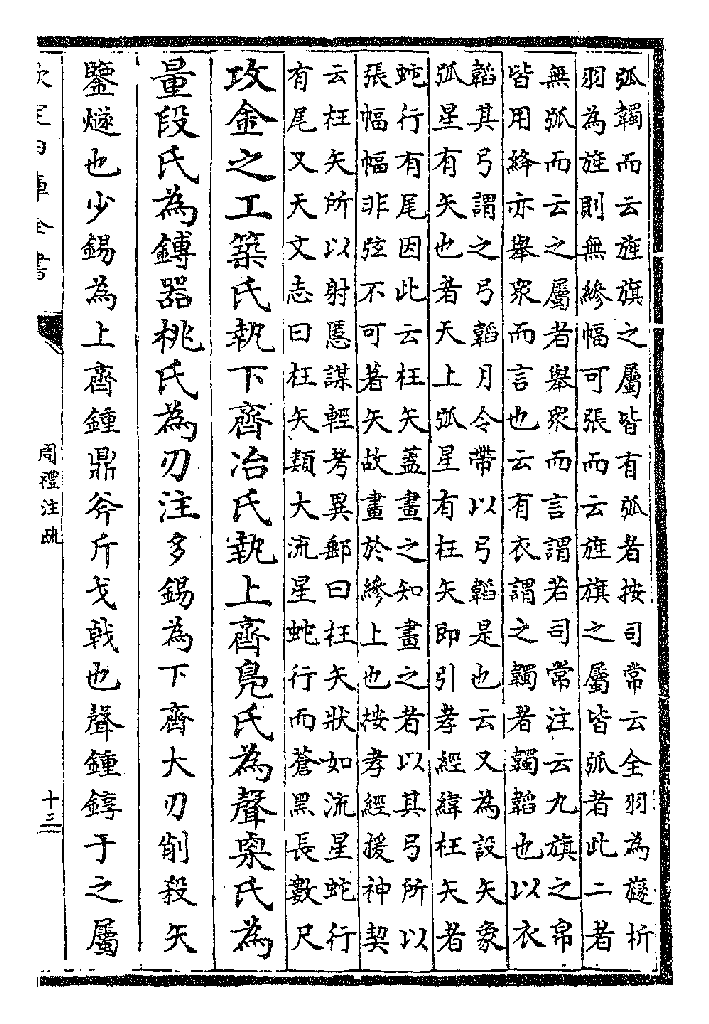 弧韣而云旌旗之屬皆有弧者按司常云全羽為旞析
羽為旌則無縿幅可張而云旌旗之屬皆弧者此二者
無弧而云之屬者舉衆而言謂若司常注云九旗之帛
皆用絳亦舉衆而言也云有衣謂之韣者韣韜也以衣
韜其弓謂之弓韜月令帶以弓韜是也云又為設矢象
弧星有矢也者天上弧星有枉矢即引孝經緯枉矢者
蛇行有尾因此云枉矢蓋畫之知畫之者以其弓所以
張幅幅非弦不可著矢故畫於縿上也按孝經援神契
云枉矢所以射慝謀輕考異郵曰枉矢狀如流星蛇行
有尾又天文志曰枉矢類大流星蛇行而蒼黑長數尺
攻金之工築氏執下齊冶氏執上齊鳧氏為聲㮚氏為
量段氏為鎛器桃氏為刃注多錫為下齊大刃削殺矢
鑒燧也少錫為上齊鍾鼎斧斤戈戟也聲鍾錞于之屬
欽定四庫全書
周禮注疏
十三